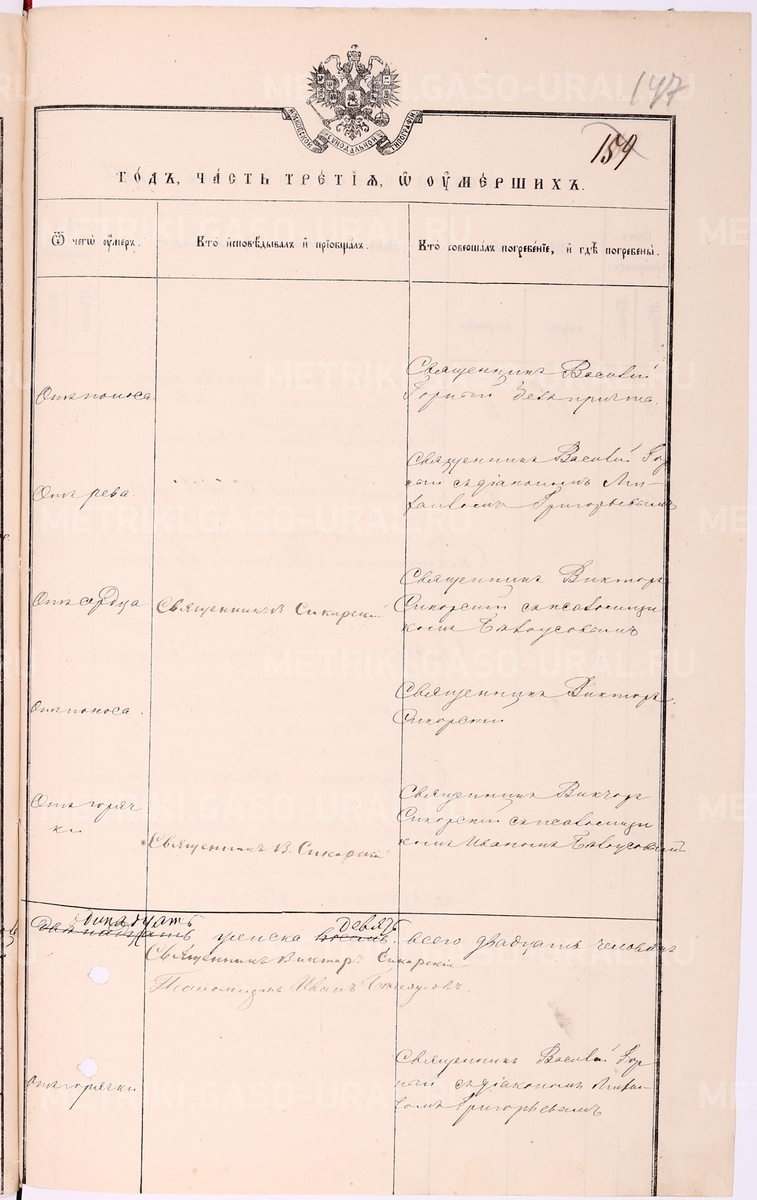 147
159
МОСКОВСКОЙ СѴНОДАЛЬНОЙ ТИПОГРАФІИ
ГОДЪ, ЧАСТЬ ТРЕТІЯ, Ѿ ОУМЕРШИХЪ.
Ѿ чегѡ оумеръ.
Кто исповѣдывалъ и пріобщалъ.
Кто совершалъ погребеніе, и гдѣ погребены.
Отъ поноса
Священникъ Василій
Горный безъ причта.
Отъ рева
Священникъ Василій Гор
ный съ діакономъ Ми-
хаиломъ Григорьевымъ
Отъ сердца
Священникъ В Сикорскій
Священникъ Викторъ
Сикорскій съ псаломщи
комъ Белоусовымъ
Отъ поноса.
Священникъ Викторъ
Сикорскій
Отъ горяч
ки
Священникъ В. Сикорскій
Священникъ Викторъ
Сикорскій съ псаломщи
комъ Иваномъ Белоусовымъ
девять
женска восемь. всего двадцать человекъ
Священникъ Викторъ Сикорскій
Псаломщикъ Иванъ Белоусовъ.
Отъ горячки
Священникъ Василій Гор
ный съ діакономъ Михаи-
ломъ Григорьевымъ
METRIKI.GASO-URAL.RU